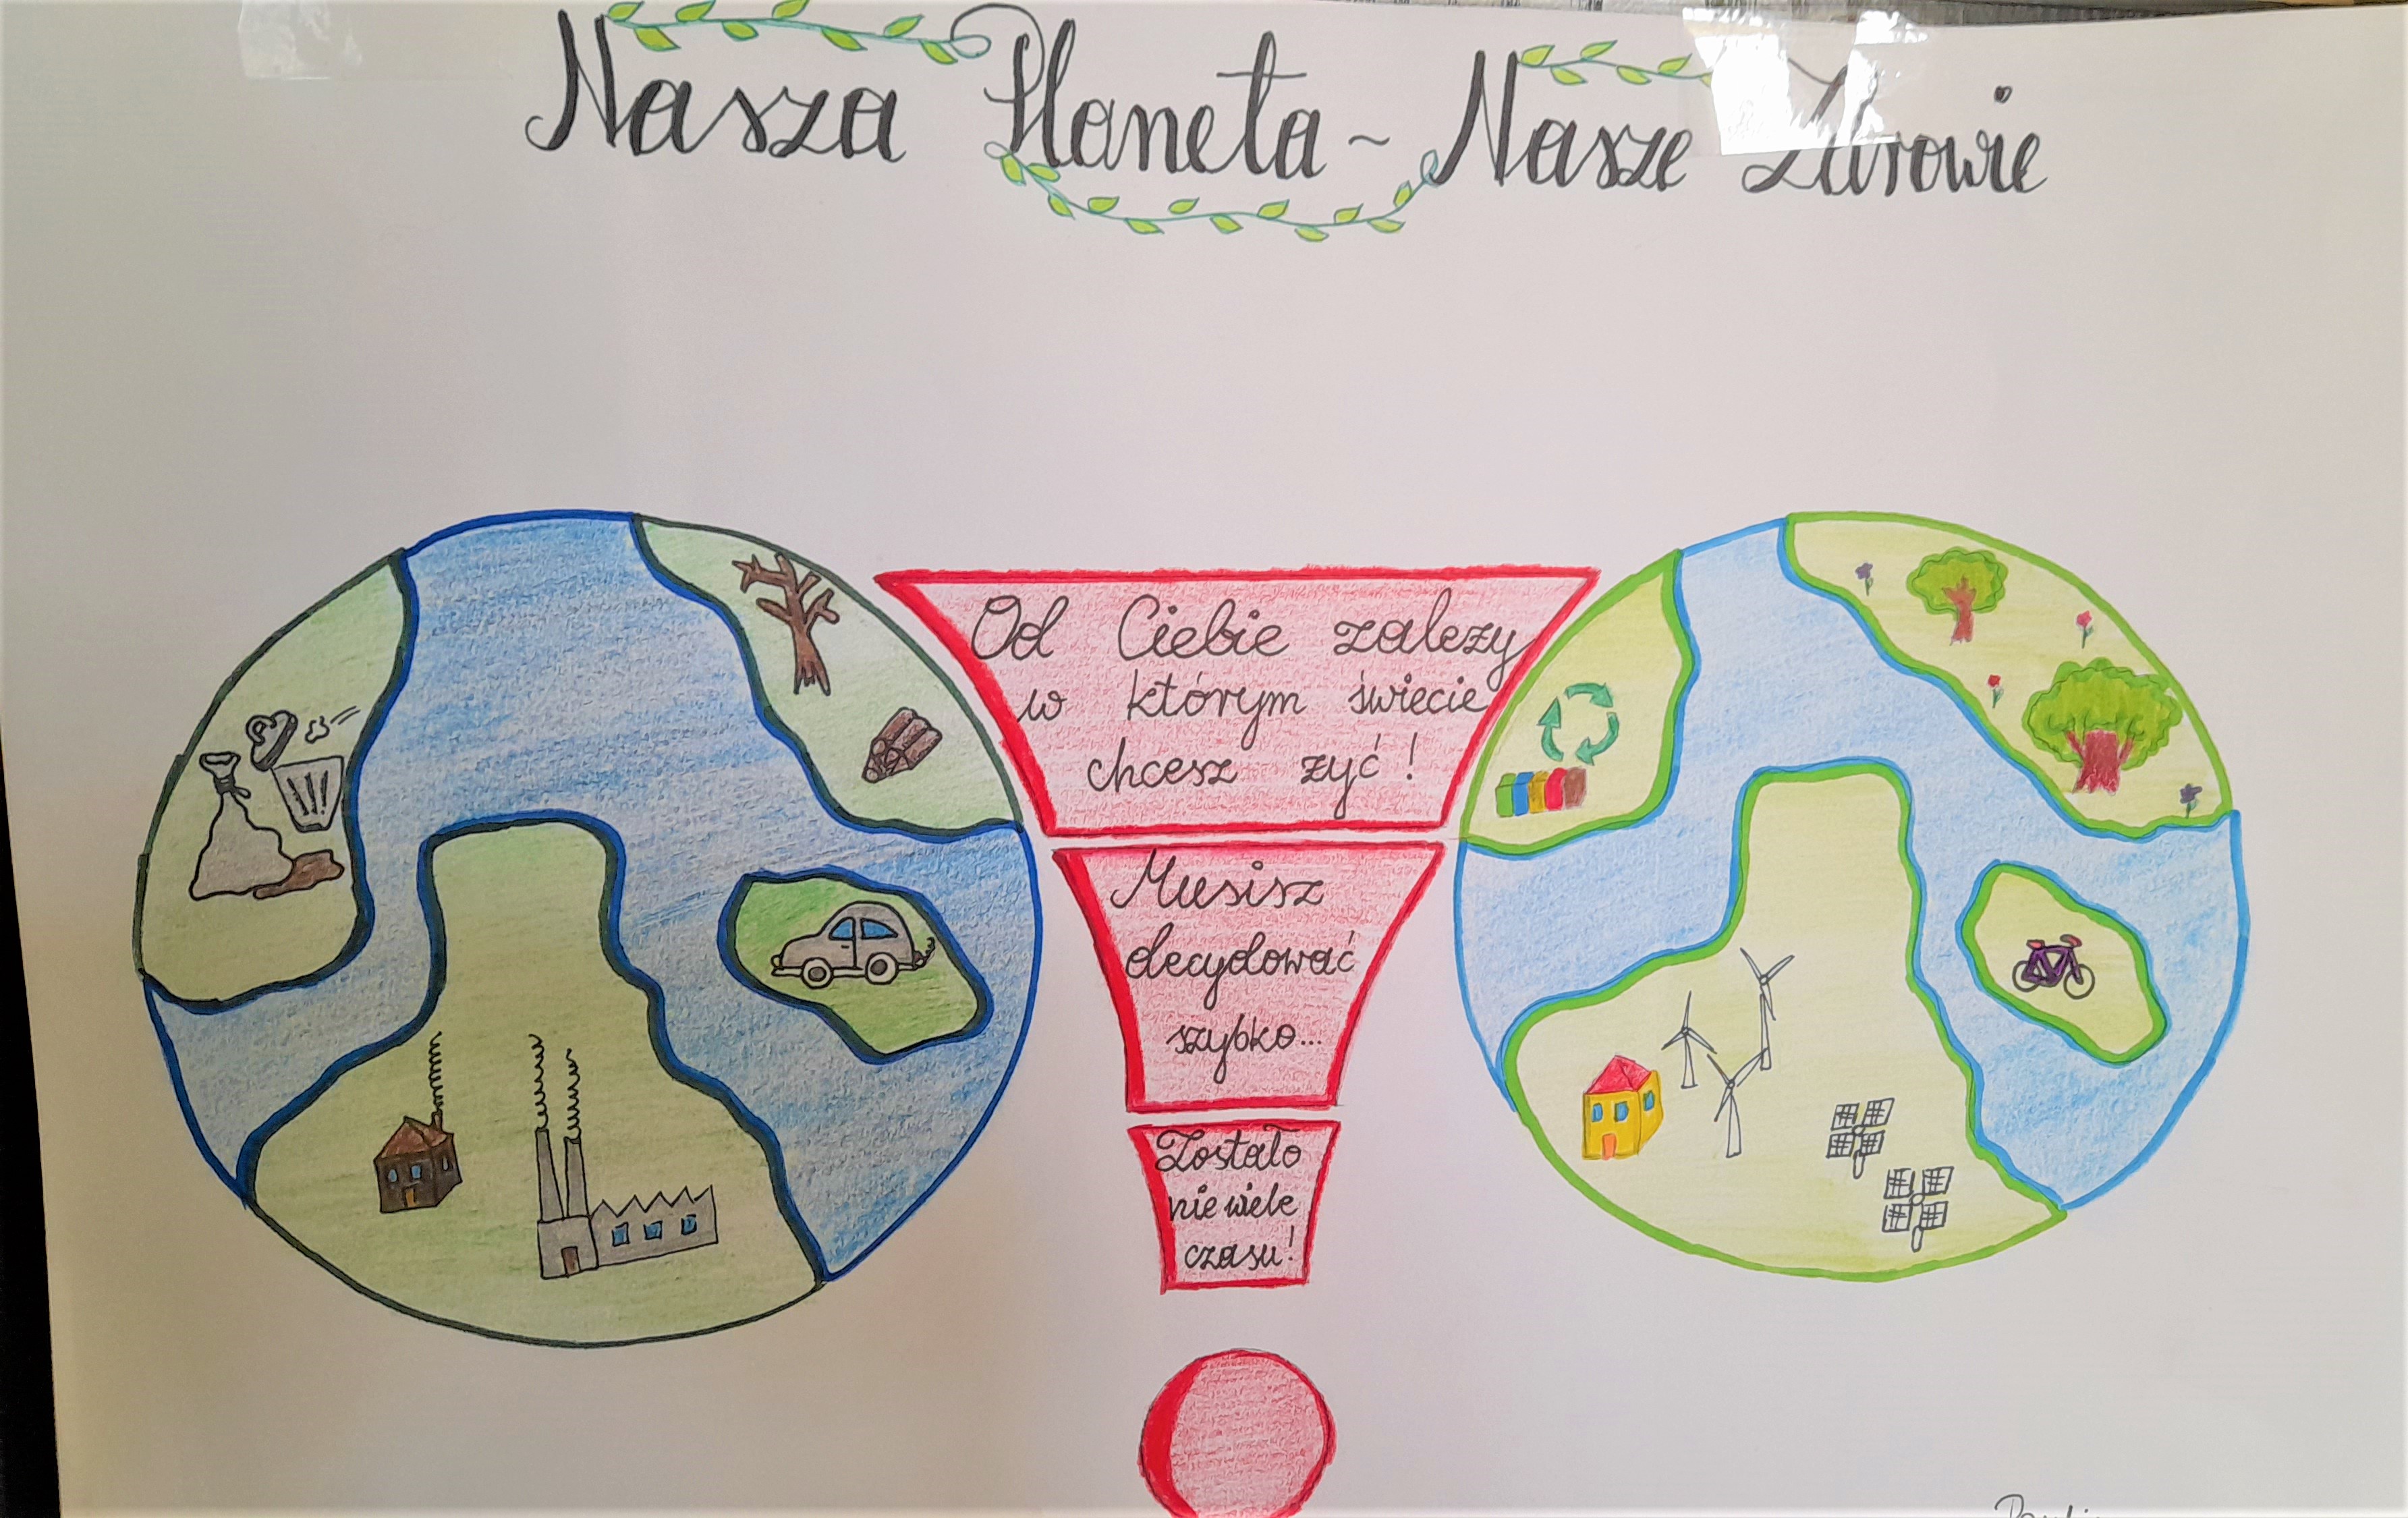 Nasza Planeta ~ Nasze Zdrowie
Od Ciebie zależy
w którym świecie
chcesz żyć!
Musisz
decydować
szybko...
Zostało
niewiele
czasu!